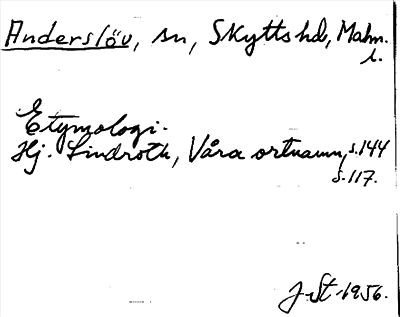 Anderslöv, sn, Skytts hd, Malm.
l.
Etymologi.
Hj. Lindroth, Våra ortnamn, s.144
s.117.
J. St. 1956.